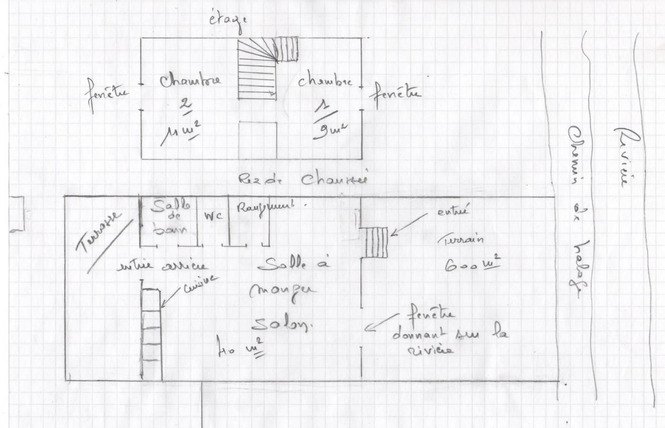 étage
Chambre
2
11 m²
chambre
1
9 m²
fenêtre
fenêtre
Rez de Chaussée
Terrasse
Salle
de
bain
WC
Rangement.
entrée arrière
cuisine
Salle à
manger
Salon.
40 m²
entrée
Terrain
600 m²
fenêtre
donnant sur la
rivière
Chemin de halage
Rivière